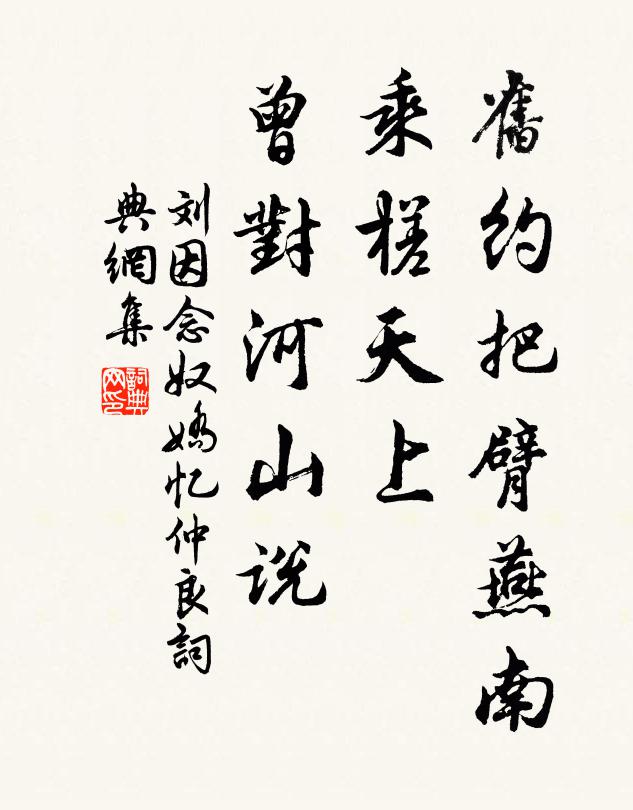 舊約把臂燕南
乘槎天上
曾對河山說
刘因念奴嬌忆仲良詞
典網集
詞典
网印